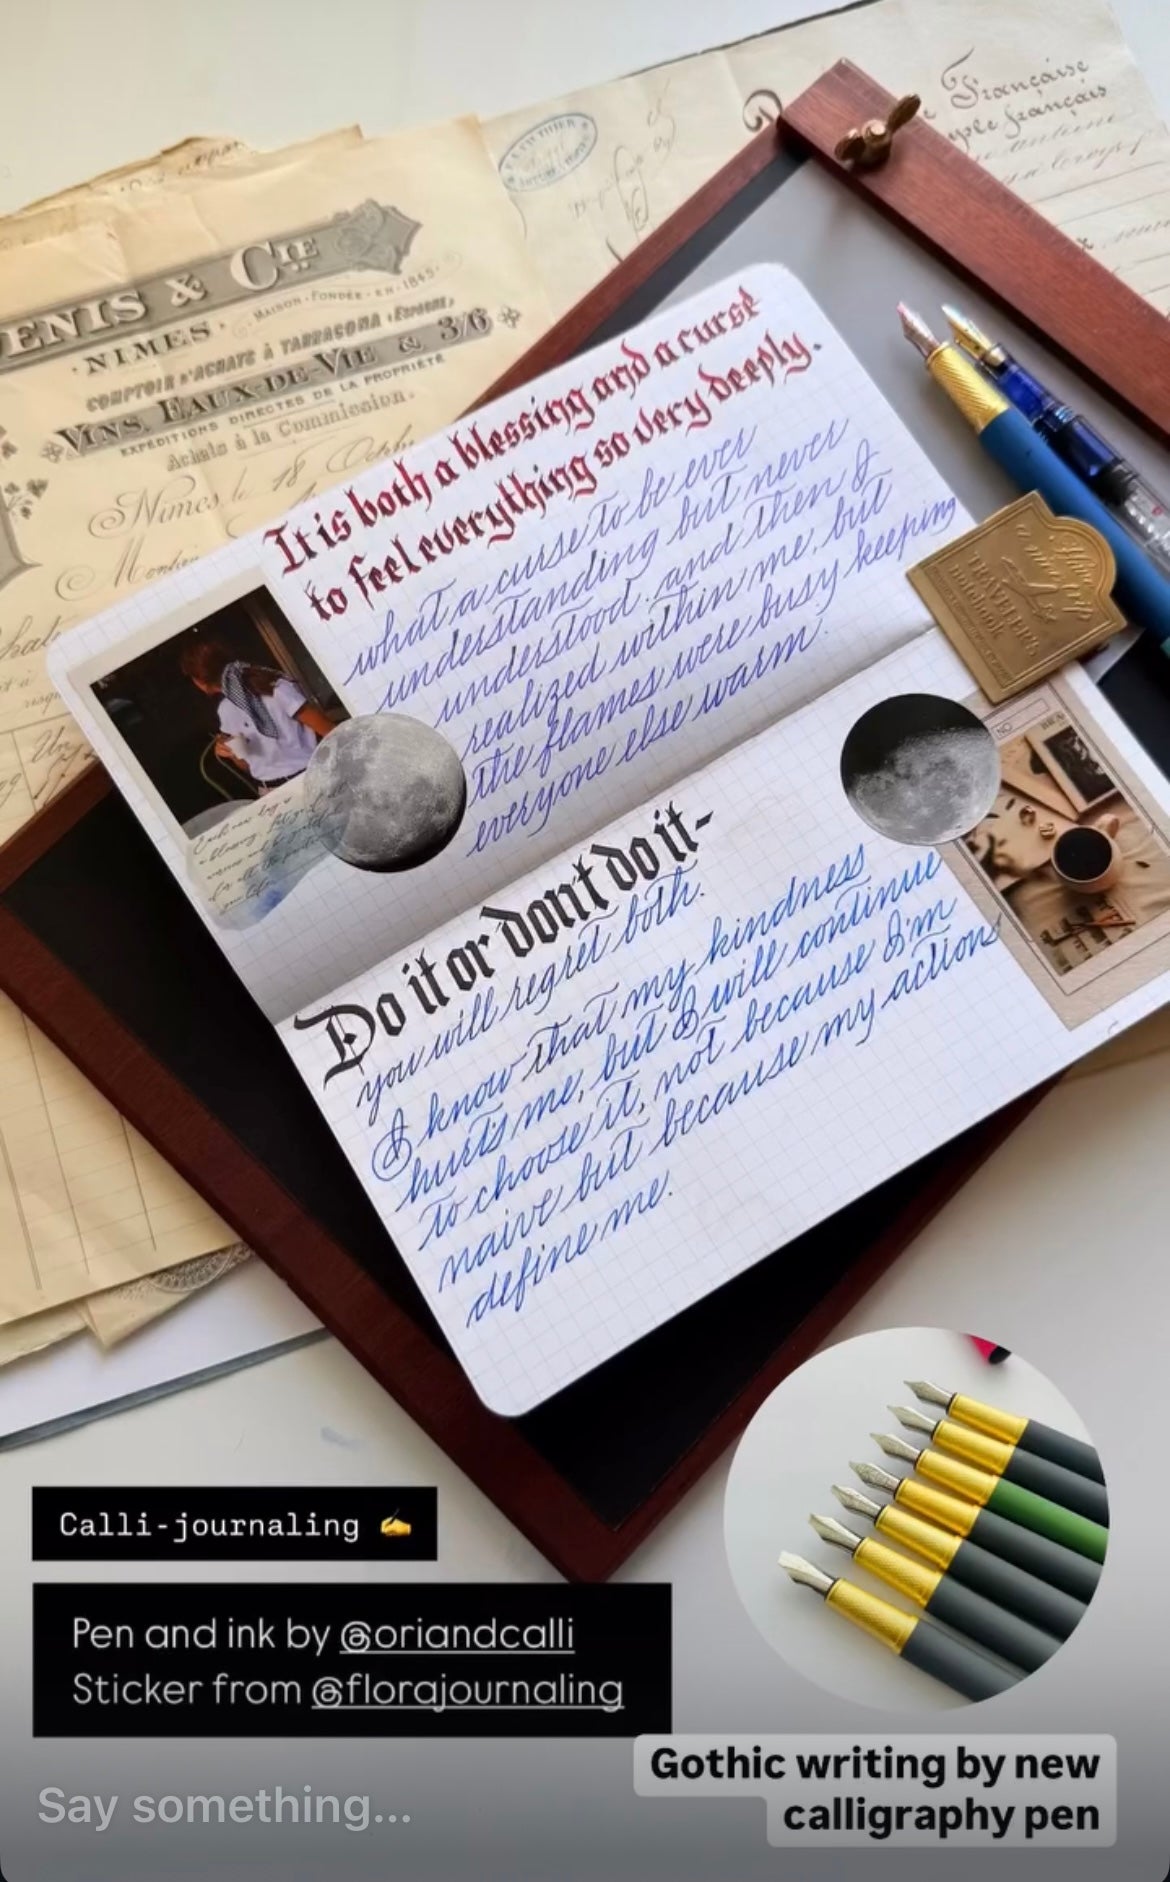 ENIS & CIE
MAISON · FONDÉE · EN · 1845
· NIMES ·
COMPTOIR D'ACHATS À TARRAGONA (ESPAGNE)
VINS, EAUX-DE-VIE & 3/6
EXPÉDITIONS DIRECTES DE LA PROPRIÉTÉ
Achats à la Commission.
Nimes le 18
Française
français
It is both a blessing and a curse
to feel everything so very deeply.
what a curse to be ever
understanding but never
understood. and then I
realized within me, but
the flames were busy keeping
everyone else warm.
TRAVELER'S
notebook
NO
Do it or dont do it-
you will regret both.
I know that my kindness
hurts me, but I will continue
to choose it, not because I'm
naive but because my actions
define me.
Calli-journaling ✍️
Pen and ink by @oriandcalli
Sticker from @florajournaling
Gothic writing by new
calligraphy pen
Say something...